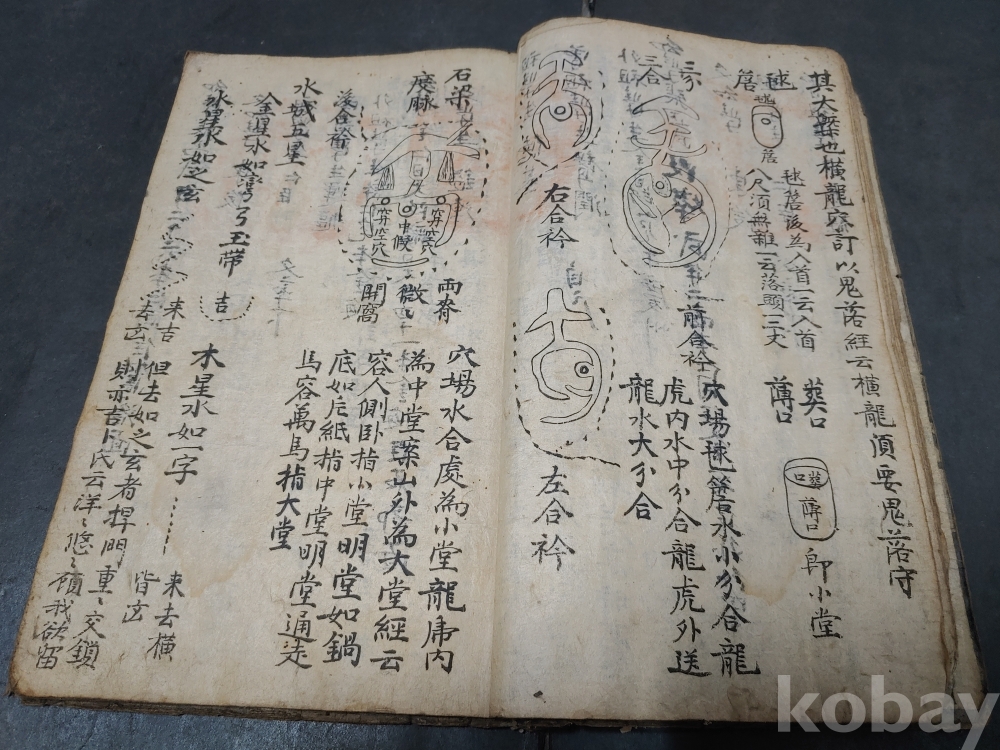 其大槩也橫龍窮訂以鬼落經云橫龍須要鬼落守
毬
簷
毬
簷
毬簷後為入首一云入首
八尺須無難一云落頭三丈
葬口
薄口
葬口
薄口
即小堂
三合
前合衿
穴場毬簷水小分合龍
虎內水中分合龍虎外送
龍水大分合
右合衿
左合衿
石梁
度脉
穿空穴
穿空穴
兩脊
微
開窩
穴場水合處為小堂龍虎內
為中堂案山外為大堂經云
容人側卧指小堂明堂如鍋
底如片紙指中堂明堂通迲
馬容萬馬指大堂
水城五星
金星水如彎弓玉帶
吉
木星水如一字
来去橫
皆凶
水星水如之玄
来吉
去玄
但去如之玄者捍門重〻交鎖
則亦吉卜氏云洋〻悠〻顧我欲留
kobay